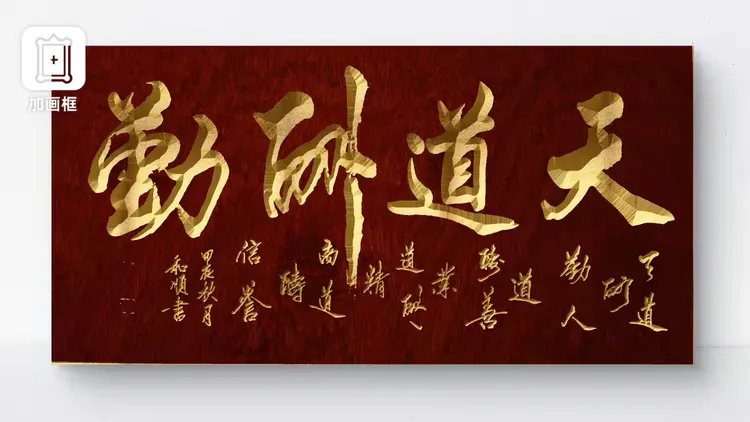 加画框
天道酬勤
天道
酬
勤人
道
酬善
業
道酬
精
商道
酬
信誉
甲辰秋月
和順書